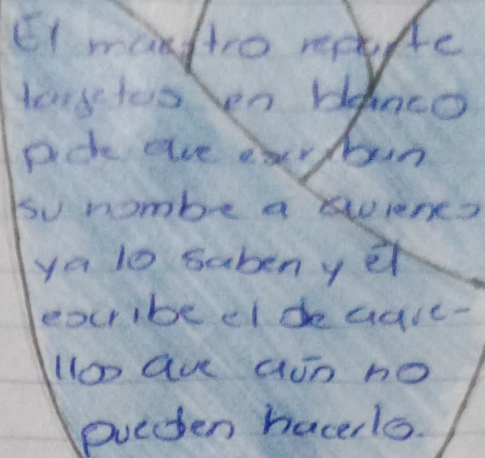 El maestro reparte
targetas en blanco
pide que escriban
su nombre a quienes
ya lo saben y él
escribe el de aque-
llos que aún no
pueden hacerlo.